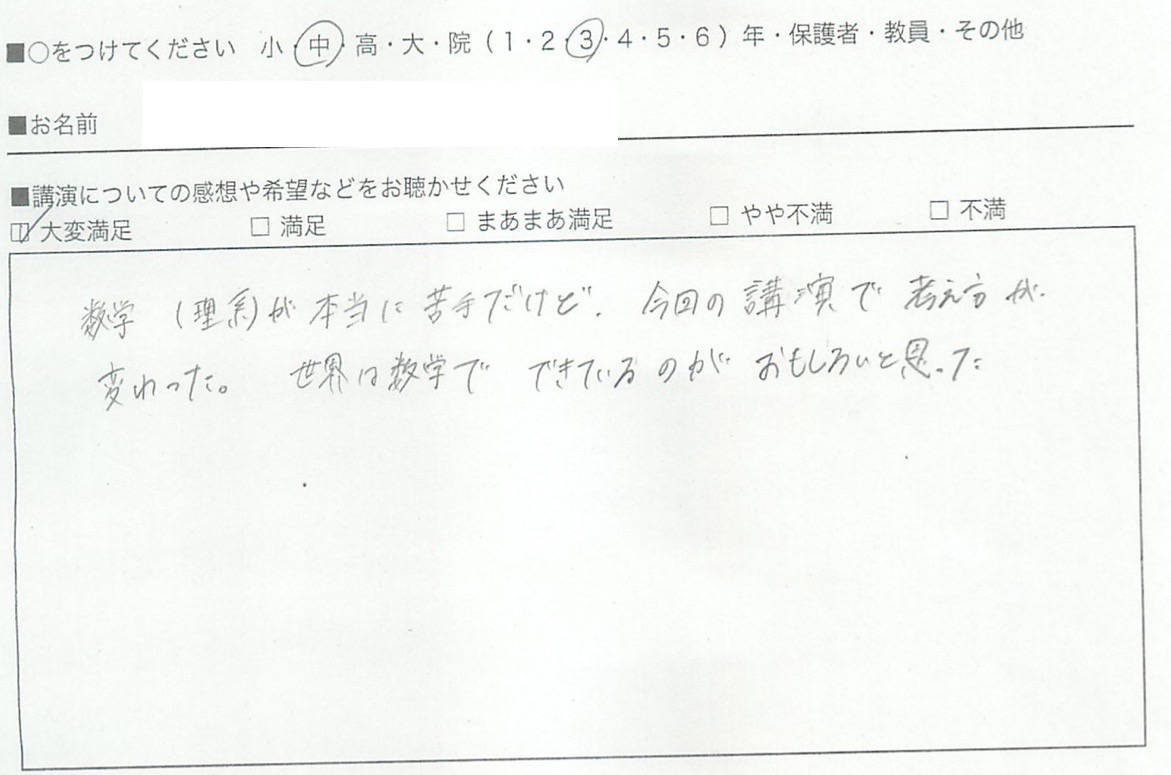 ■○をつけてください 小・中・高・大・院（1・2・3・4・5・6）年・保護者・教員・その他
■お名前
■講演についての感想や希望などをお聴かせください
□ 大変満足 □ 満足 □ まあまあ満足 □ やや不満 □ 不満
数学（理系）が本当に苦手だけど、今回の講演で考え方が
変わった。 世界は数学でできているのがおもしろいと思った